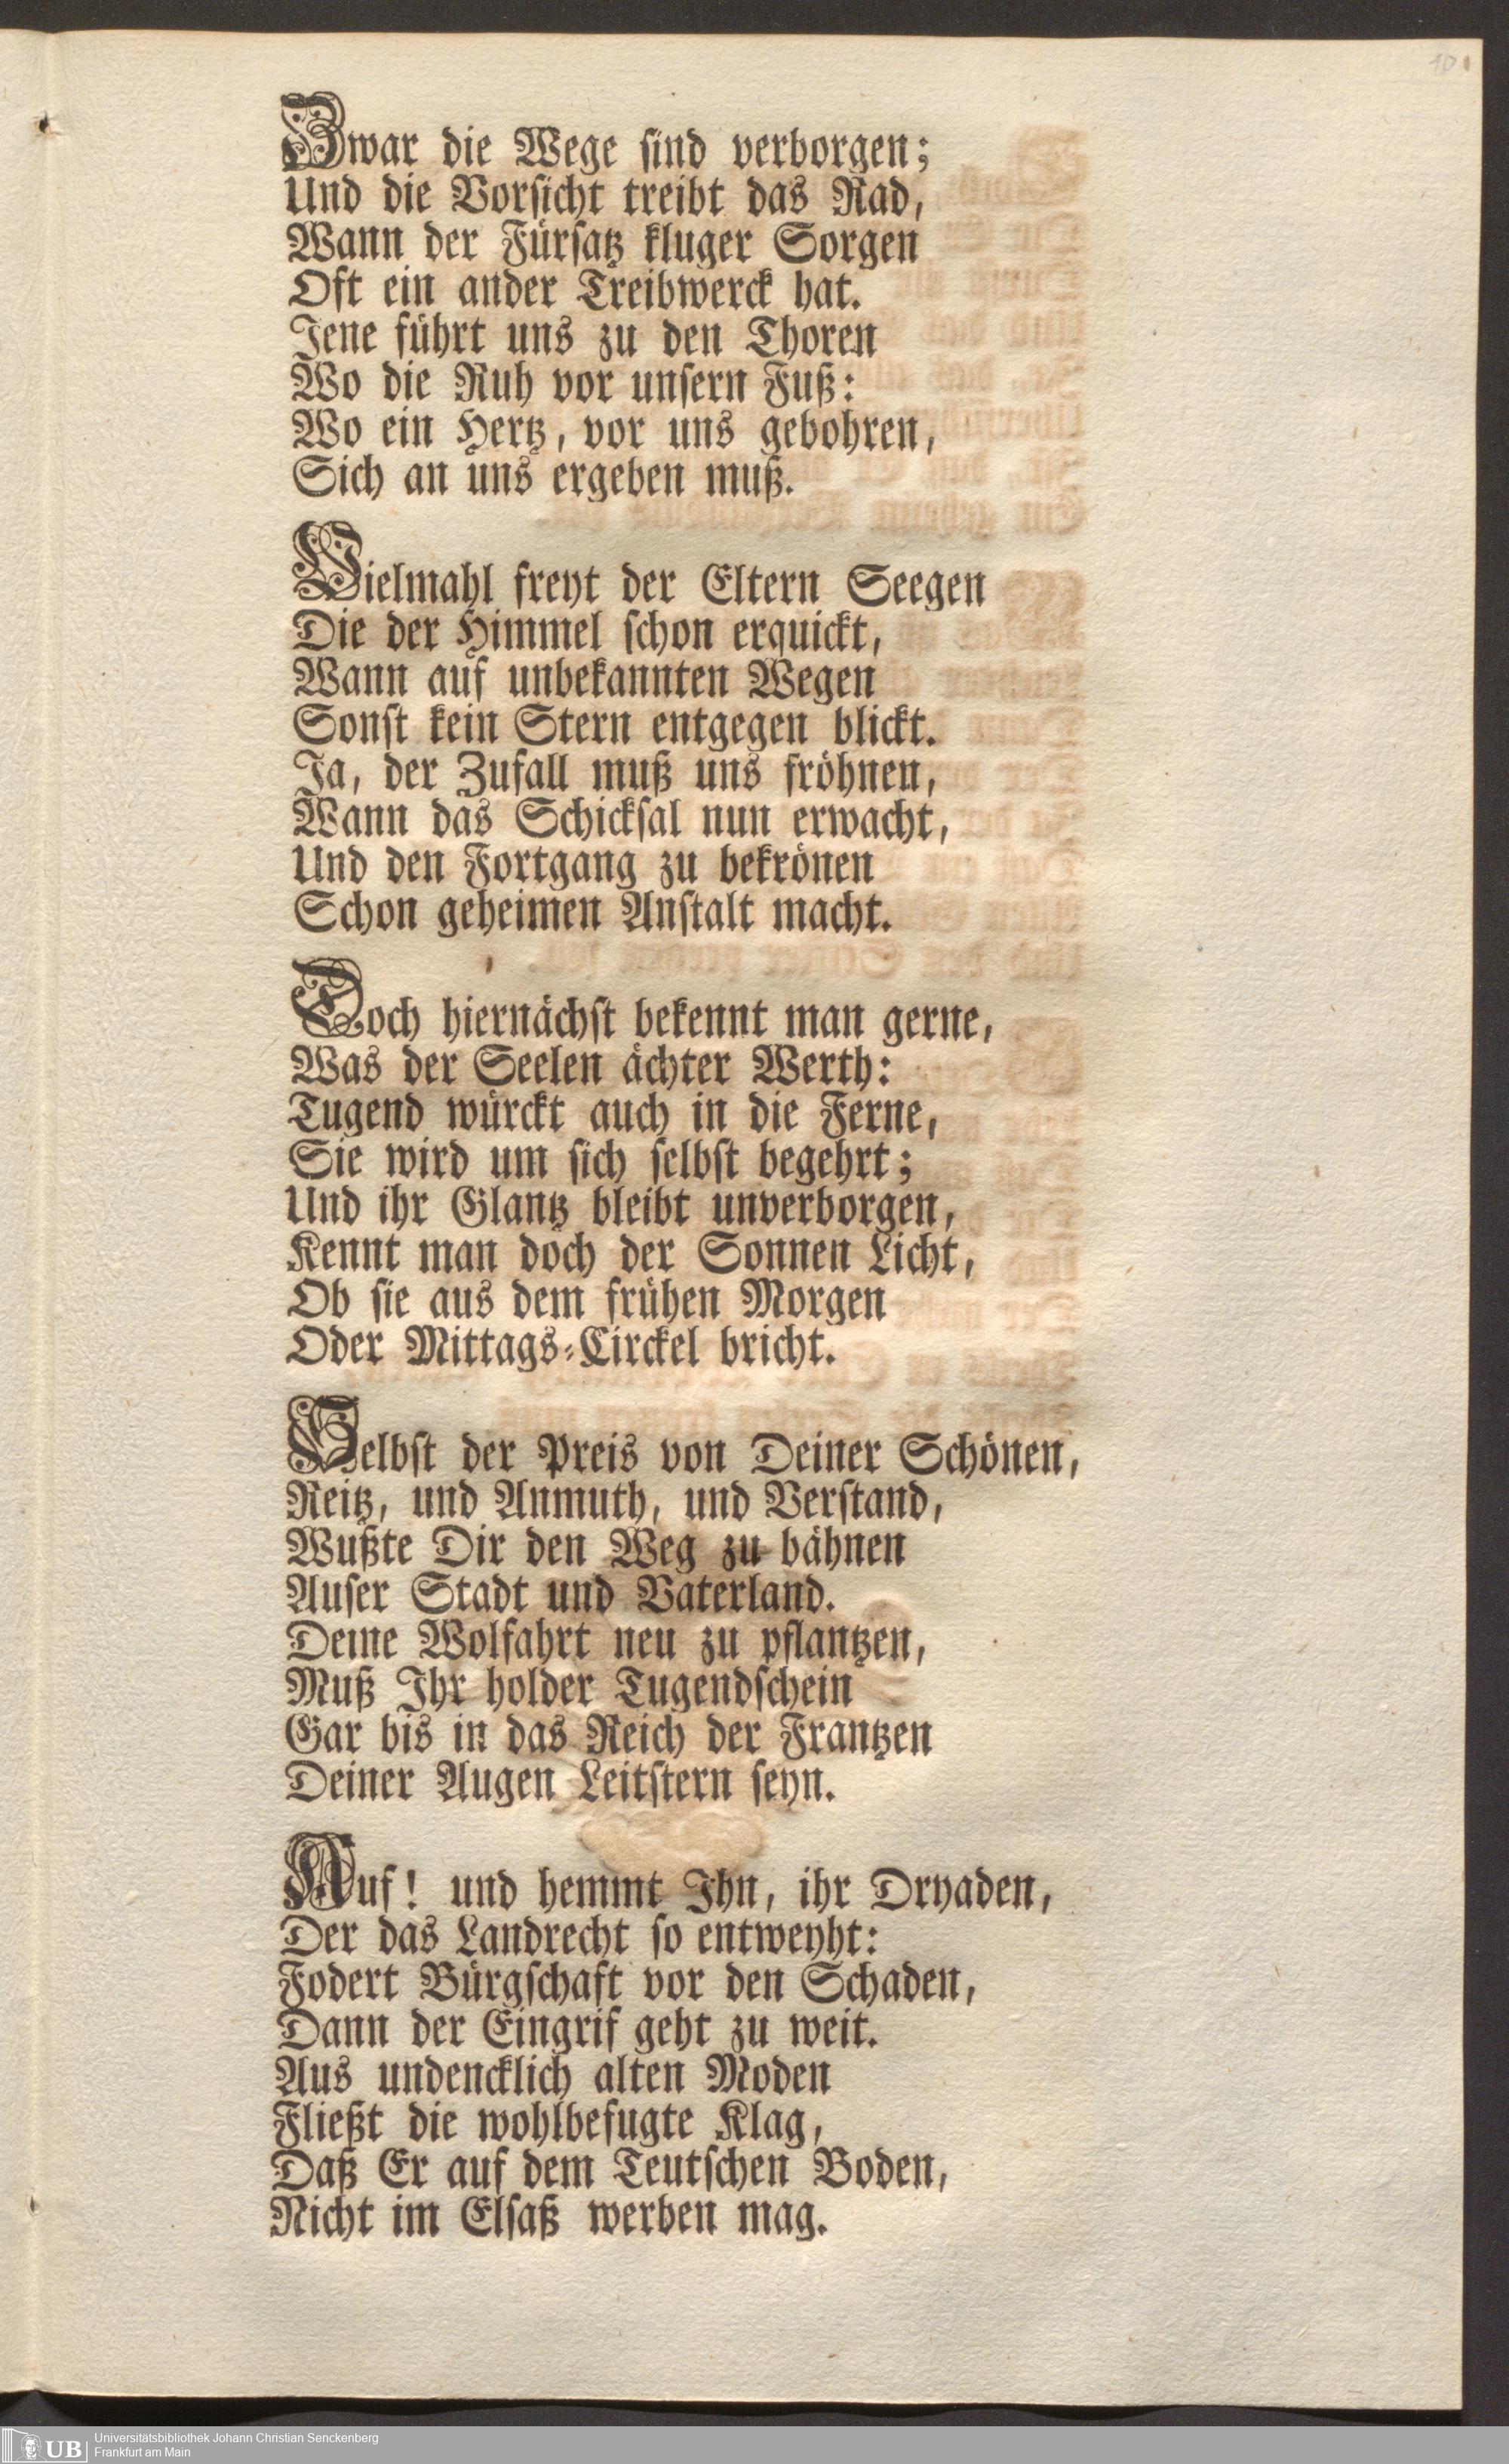 Zwar die Wege sind verborgen;
Und die Vorsicht treibt das Rad,
Wann der Fürsatz kluger Sorgen
Oft ein ander Treibwerck hat.
Jene führt uns zu den Thoren
Wo die Ruh vor unsern Fuß:
Wo ein Hertz, vor uns gebohren,
Sich an uns ergeben muß.
Vielmahl freyt der Eltern Seegen
Die der Himmel schon erquickt,
Wann auf unbekannten Wegen
Sonst kein Stern entgegen blickt.
Ja, der Zufall muß uns fröhnen,
Wann das Schicksal nun erwacht,
Und den Fortgang zu bekrönen
Schon geheimen Anstalt macht.
Doch hiernächst bekennt man gerne,
Was der Seelen ächter Werth:
Tugend würckt auch in die Ferne,
Sie wird um sich selbst begehrt;
Und ihr Glantz bleibt unverborgen,
Kennt man doch der Sonnen Licht,
Ob sie aus dem frühen Morgen
Oder Mittags-Circkel bricht.
Selbst der Preis von Deiner Schönen,
Reitz, und Anmuth, und Verstand,
Wußte Dir den Weg zu bähnen
Auser Stadt und Vaterland.
Deine Wolfahrt neu zu pflantzen,
Muß Ihr holder Tugendschein
Gar bis in das Reich der Frantzen
Deiner Augen Leitstern seyn.
Auf! und hemmt Ihn, ihr Dryaden,
Der das Landrecht so entweyht:
Fodert Bürgschaft vor den Schaden,
Dann der Eingrif geht zu weit.
Aus undencklich alten Moden
Fließt die wohlbefugte Klag,
Daß Er auf dem Teutschen Boden,
Nicht im Elsaß werben mag.
UB Universitätsbibliothek Johann Christian Senckenberg
Frankfurt am Main